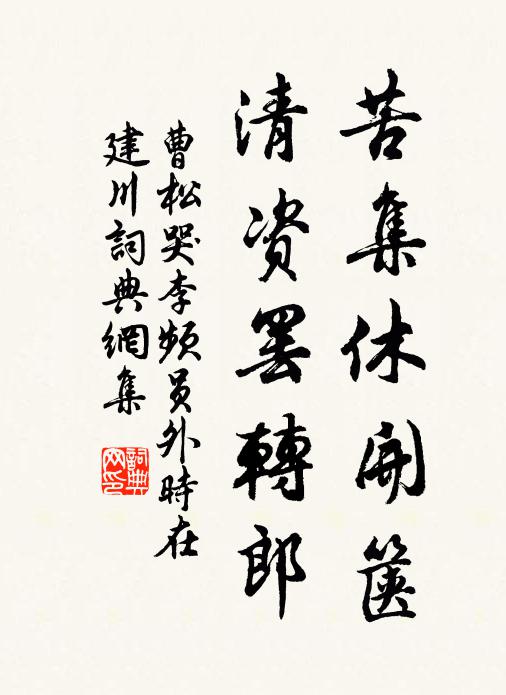 苦集休開篋
清资罢轉郎
曹松哭李频員外時在
建川詞典網集
詞典
网印